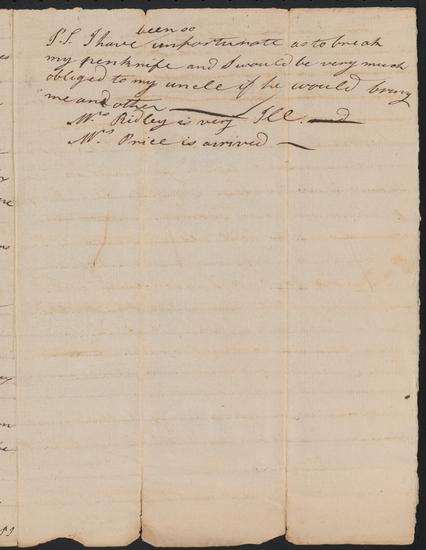 been so
P.S. I have unfortunate as to break
my penknife and I would be very much
obliged to my uncle if he would bring
me and other
Mrs Ridley is very Ill. — d
Mrs Price is arrived —